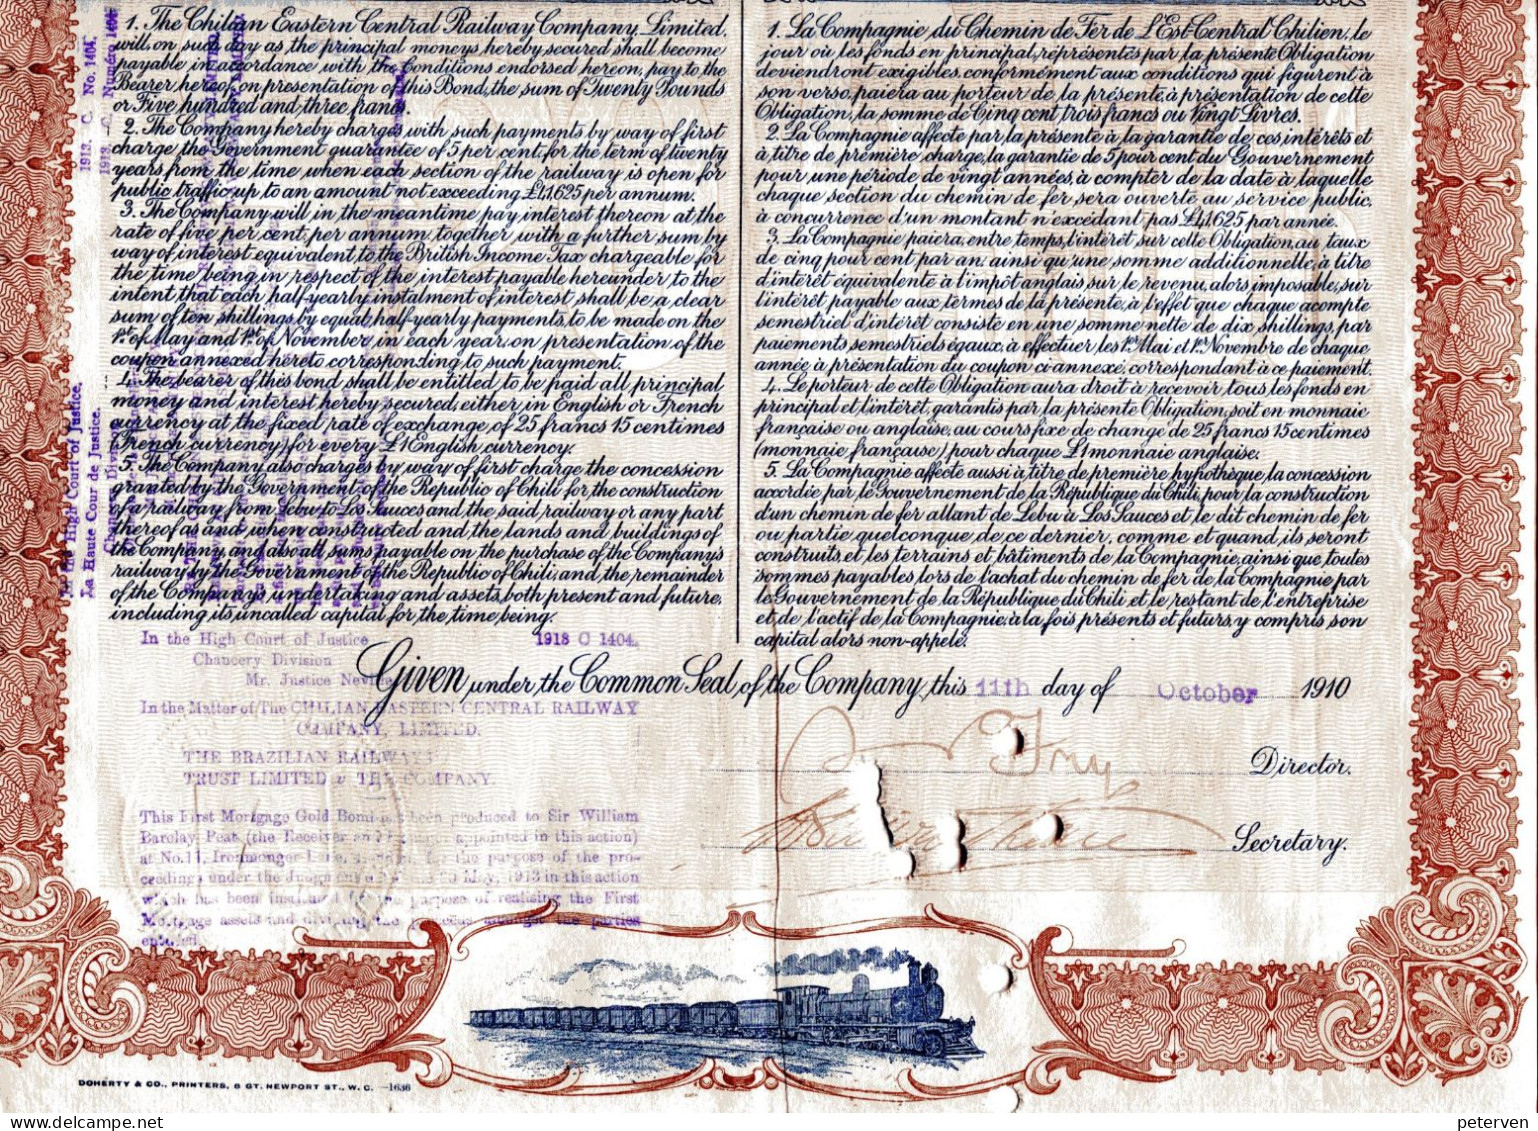 1. The Chilian Eastern Central Railway Company, Limited,
will, on such day as the principal moneys hereby secured shall become
payable in accordance with the Conditions endorsed hereon, pay to the
Bearer hereof on presentation of this Bond, the sum of Twenty Pounds
or Five hundred and three francs.
2. The Company hereby charges with such payments by way of first
charge the Government guarantee of 5 per cent. for the term of twenty
years from the time when each section of the railway is open for
public traffic up to an amount not exceeding £41,625 per annum.
3. The Company will in the meantime pay interest thereon at the
rate of five per cent. per annum, together with a further sum by
way of interest equivalent to the British Income Tax chargeable for
the time being in respect of the interest payable hereunder to the
intent that each half-yearly instalment of interest shall be a clear
sum of ten shillings, by equal half-yearly payments, to be made on the
1st of May and 1st of November, in each year, on presentation of the
coupon annexed hereto corresponding to such payment.
4. The bearer of this bond shall be entitled to be paid all principal
money and interest hereby secured, either in English or French
currency at the fixed rate of exchange of 25 francs 15 centimes
(French currency) for every £1 English currency.
5. The Company also charges by way of first charge the concession
granted by the Government of the Republic of Chili for the construction
of a railway from Lebu to Los Sauces and the said railway or any part
thereof as and when constructed and the lands and buildings of
the Company and also all sums payable on the purchase of the Company's
railway by the Government of the Republic of Chili, and the remainder
of the Company's undertaking and assets, both present and future,
including its uncalled capital for the time being.
1. La Compagnie du Chemin de Fer de L'Est-Central Chilien, le
jour où les fonds en principal, représentés par la présente Obligation
deviendront exigibles, conformément aux conditions qui figurent à
son verso, paiera au porteur de la présente, à présentation de cette
Obligation, la somme de Cinq cent trois francs ou Vingt Livres.
2. La Compagnie affecte par la présente à la garantie de ces intérêts et
à titre de première charge, la garantie de 5 pour cent du Gouvernement
pour une période de vingt années, à compter de la date à laquelle
chaque section du chemin de fer sera ouverte au service public,
à concurrence d'un montant n'excédant pas £41,625 par année.
3. La Compagnie paiera, entre temps, l'intérêt sur cette Obligation, au taux
de cinq pour cent par an, ainsi qu'une somme additionnelle, à titre
d'intérêt équivalente à l'impôt anglais sur le revenu, alors imposable, sur
l'intérêt payable aux termes de la présente, à l'effet que chaque acompte
semestriel d'intérêt consiste en une somme nette de dix shillings, par
paiements semestriels égaux, à effectuer les 1er Mai et 1er Novembre de chaque
année à présentation du coupon ci-annexé, correspondant à ce paiement.
4. Le porteur de cette Obligation aura droit à recevoir tous les fonds en
principal et l'intérêt, garantis par la présente Obligation, soit en monnaie
française ou anglaise, au cours fixe de change de 25 francs 15 centimes
(monnaie française), pour chaque £1 monnaie anglaise.
5. La Compagnie affecte aussi à titre de première hypothèque, la concession
accordée par le Gouvernement de la République du Chili, pour la construction
d'un chemin de fer allant de Lebu à Los Sauces et le dit chemin de fer
ou partie quelconque de ce dernier, comme et quand, ils seront
construits, et les terrains et bâtiments de la Compagnie, ainsi que toutes
sommes payables lors de l'achat du chemin de fer de la Compagnie par
le Gouvernement de la République du Chili et le restant de l'entreprise
et de l'actif de la Compagnie, à la fois présents et futurs, y compris son
capital alors non-appelé.
In the High Court of Justice,
La Haute Cour de Justice.
Chancery Division
1913. C. No. 1404.
1913. C. Numéro 1404.
In the High Court of Justice 1913 C 1404.
Chancery Division
Mr. Justice Neville
Given under the Common Seal of the Company, this 11th day of October 1910
In the Matter of The CHILIAN EASTERN CENTRAL RAILWAY
COMPANY, LIMITED.
THE BRAZILIAN RAILWAYS
TRUST LIMITED v THE COMPANY.
This First Mortgage Gold Bond has been produced to Sir William
Barclay Peat (the Receiver and Manager appointed in this action)
at No. 11, Ironmonger Lane, London, for the purpose of the pro-
ceedings under the Judgment dated 30 May, 1913 in this action
which has been instituted for the purpose of realising the First
Mortgage assets and dividing the proceeds amongst the parties
entitled.
Fry
Director.
Secretary.
DOHERTY & CO., PRINTERS, 6 GT. NEWPORT ST., W. C. —1636
peterven